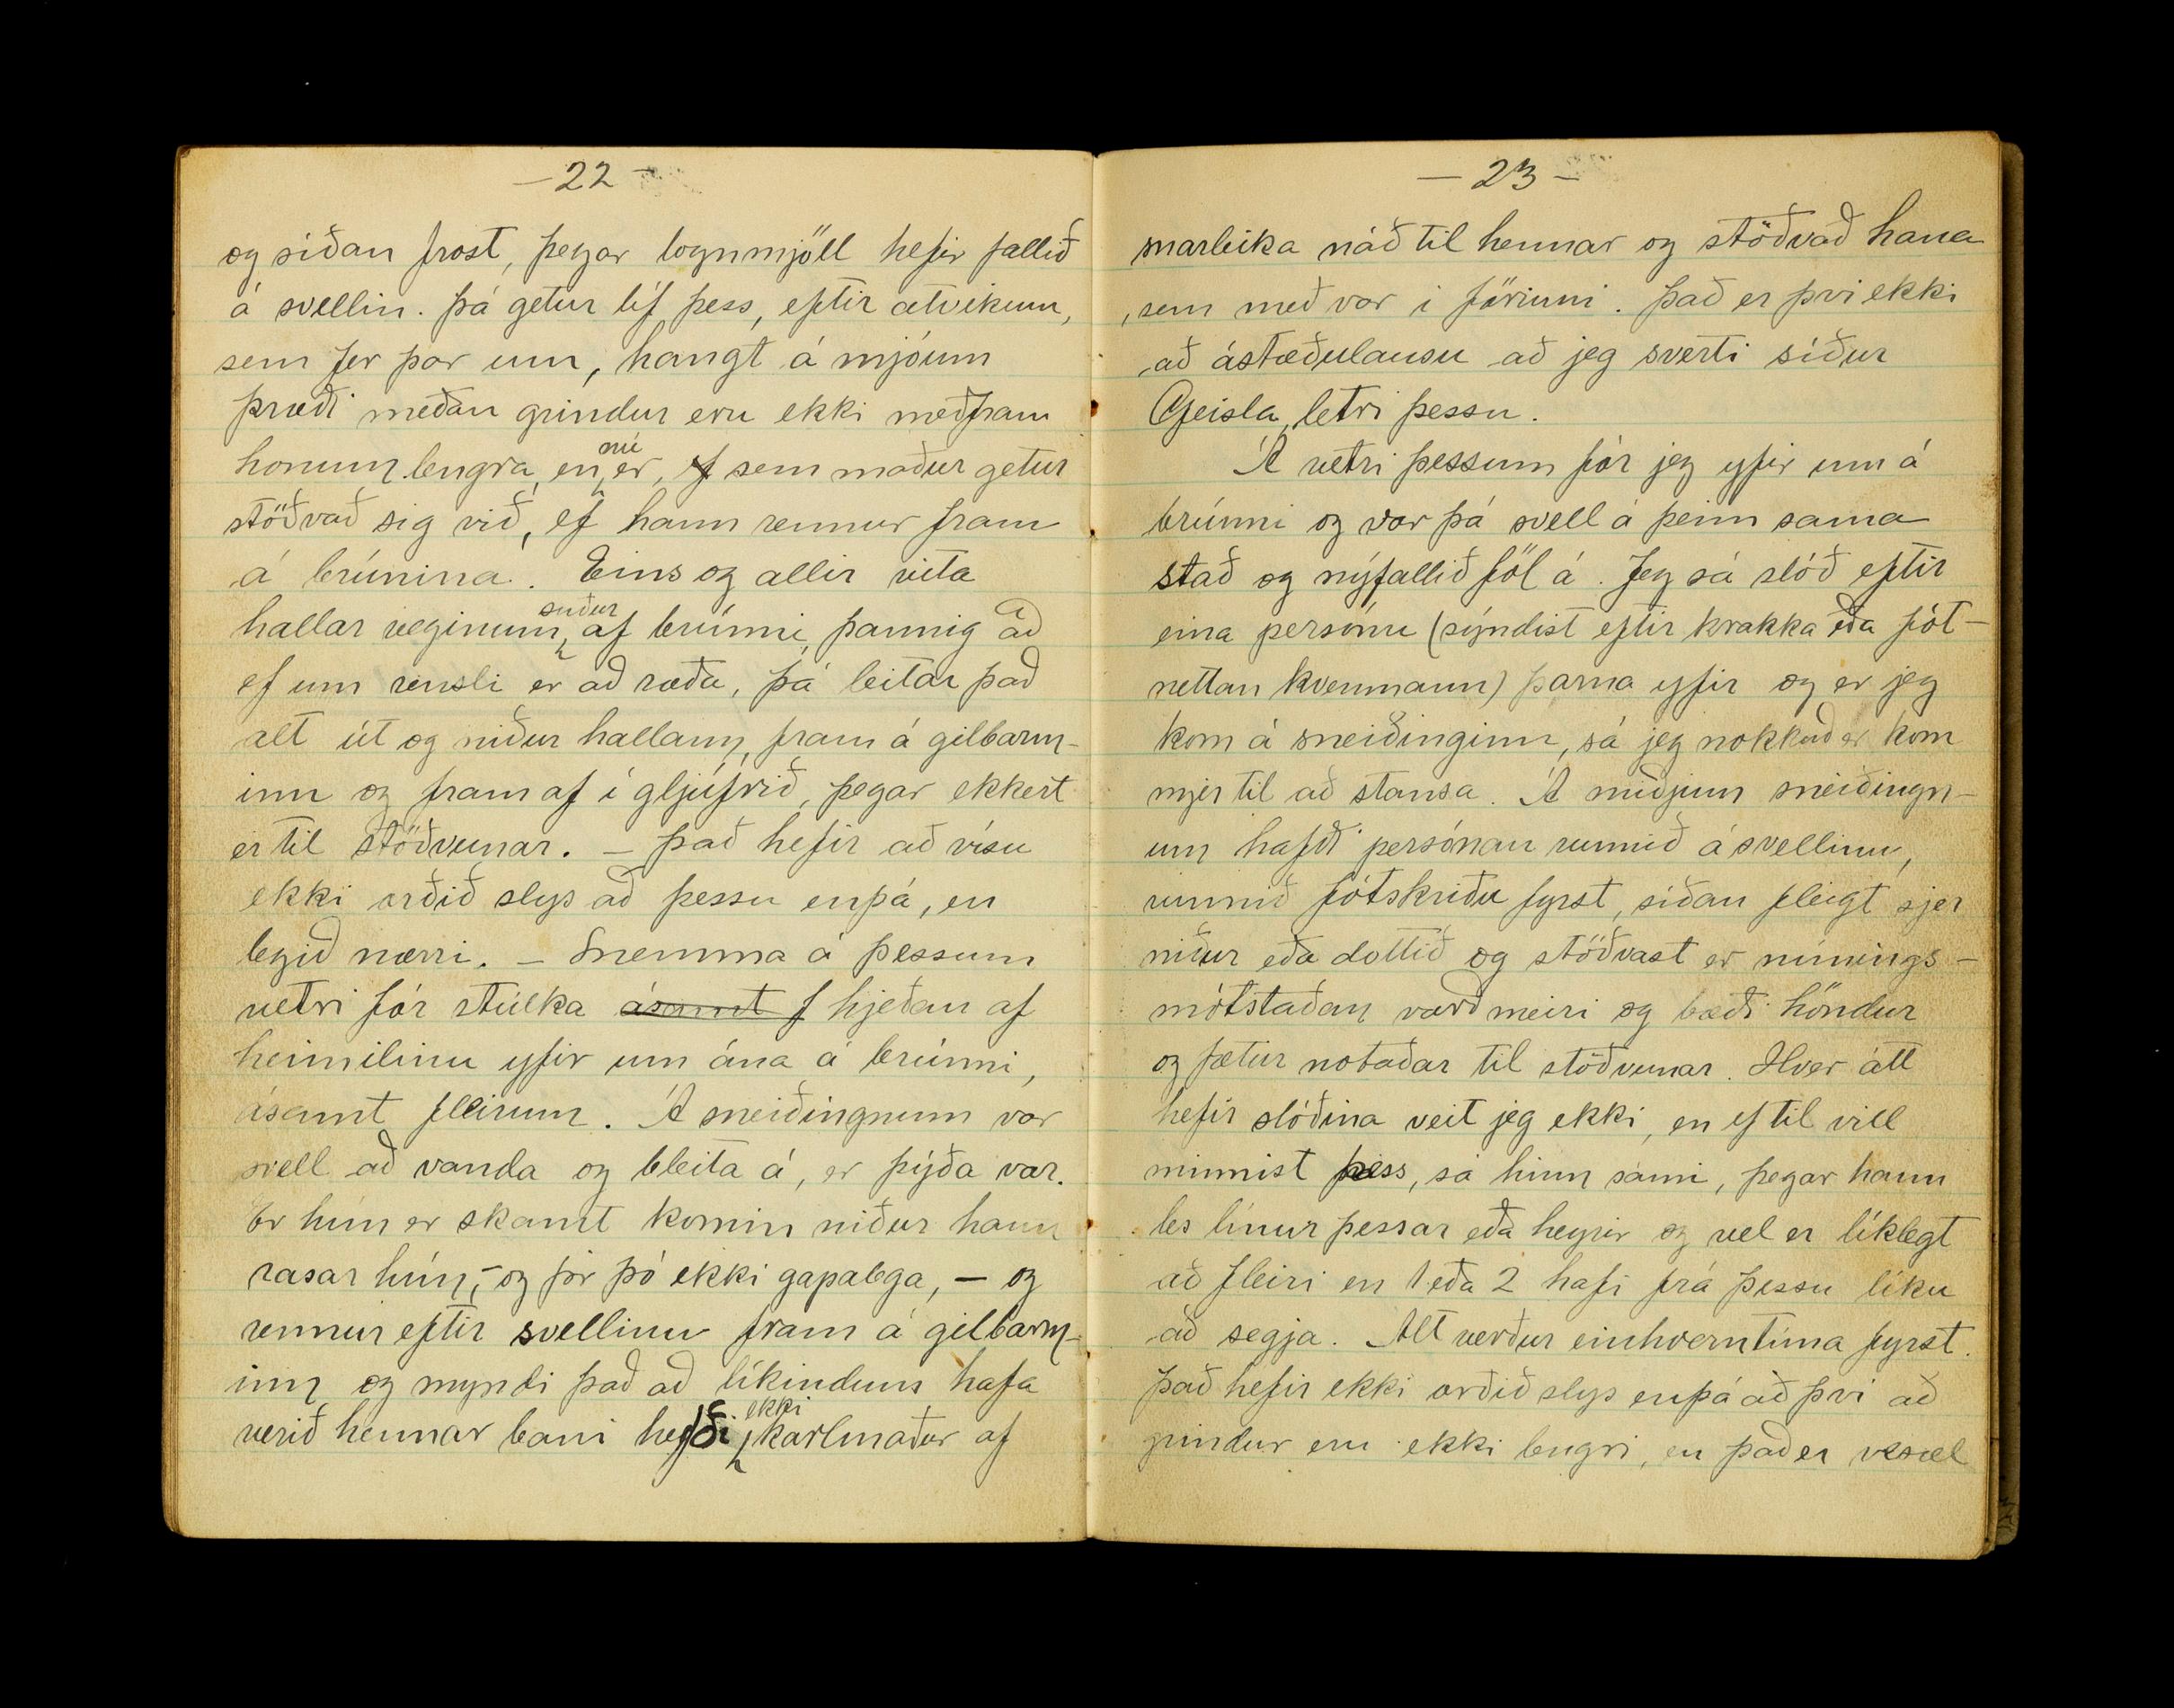 - 22 -
og síðan frost, þegar lognmjöll hefir fallið
á svellin. Þá getur líf þess, eftir atvikum,
sem fer þar um, hangt á mjóum
þræði meðan grindur eru ekki meðfram
honum lengra, en nú er, f sem maður getur
stöðvað sig við, ef hann rennur fram
á brúnina. Eins og allir vita
hallar veginum suður af brúnni, þannig að
ef um rensli er að ræða, þá leitar það
alt út og niður hallann, fram á gilbarm-
inn og fram af í gljúfrið, þegar ekkert
er til stöðvunar. - Það hefir að vísu
ekki orðið slys að þessu enþá, en
legið nærri. - Snemma á þessum
vetri fór stúlka ásamt f hjeðan af
heimilinu yfir um ána á brúnni,
ásamt fleirum. Á sneiðingnum var
svell að vanda og bleita á, er þýða var.
Er hún er skamt komin niður hann
rasar hún, - og fór þó ekki gapalega, - og
rennur eftir svellinu fram á gilbarm-
inn og myndi það að líkindum hafa
verið hennar bani hefði ekki karlmaður af
- 23 -
snarleika náð til hennar og stöðvað hana
, sem með var í förinni. Það er því ekki
að ástæðulausu að jeg sverti síður
Geisla, letri þessu.
Á vetri þessum fór jeg yfir um á
brúnni og var þá svell á þeim sama
stað og nýfallið föl á. Jeg sá slóð eftir
eina persónu (sýndist eftir krakka eða fót-
nettan kvenmann) þarna yfir og er jeg
kom á sneiðinginn, sá jeg nokkuð er kom
mjer til að stansa. Á miðjum sneiðingn-
um hafði persónan runnið á svellinu,
runnið fótskriðu fyrst, síðan fleigt sjer
niður eða dottið og stöðvast er núnings-
mótstaðan varð meiri og bæði höndur
og fætur notaðar til stöðvunar. Hver átt
hefir slóðina veit jeg ekki, en ef til vill
minnist þess, sá hinn sami, þegar hann
les línur þessar eða heyrir og vel er líklegt
að fleiri en 1 eða 2 hafi frá þessu líku
að segja. Alt verður einhverntíma fyrst.
Það hefir ekki orðið slys enþá að því að
grindur eru ekki lengri, en það er vesæl